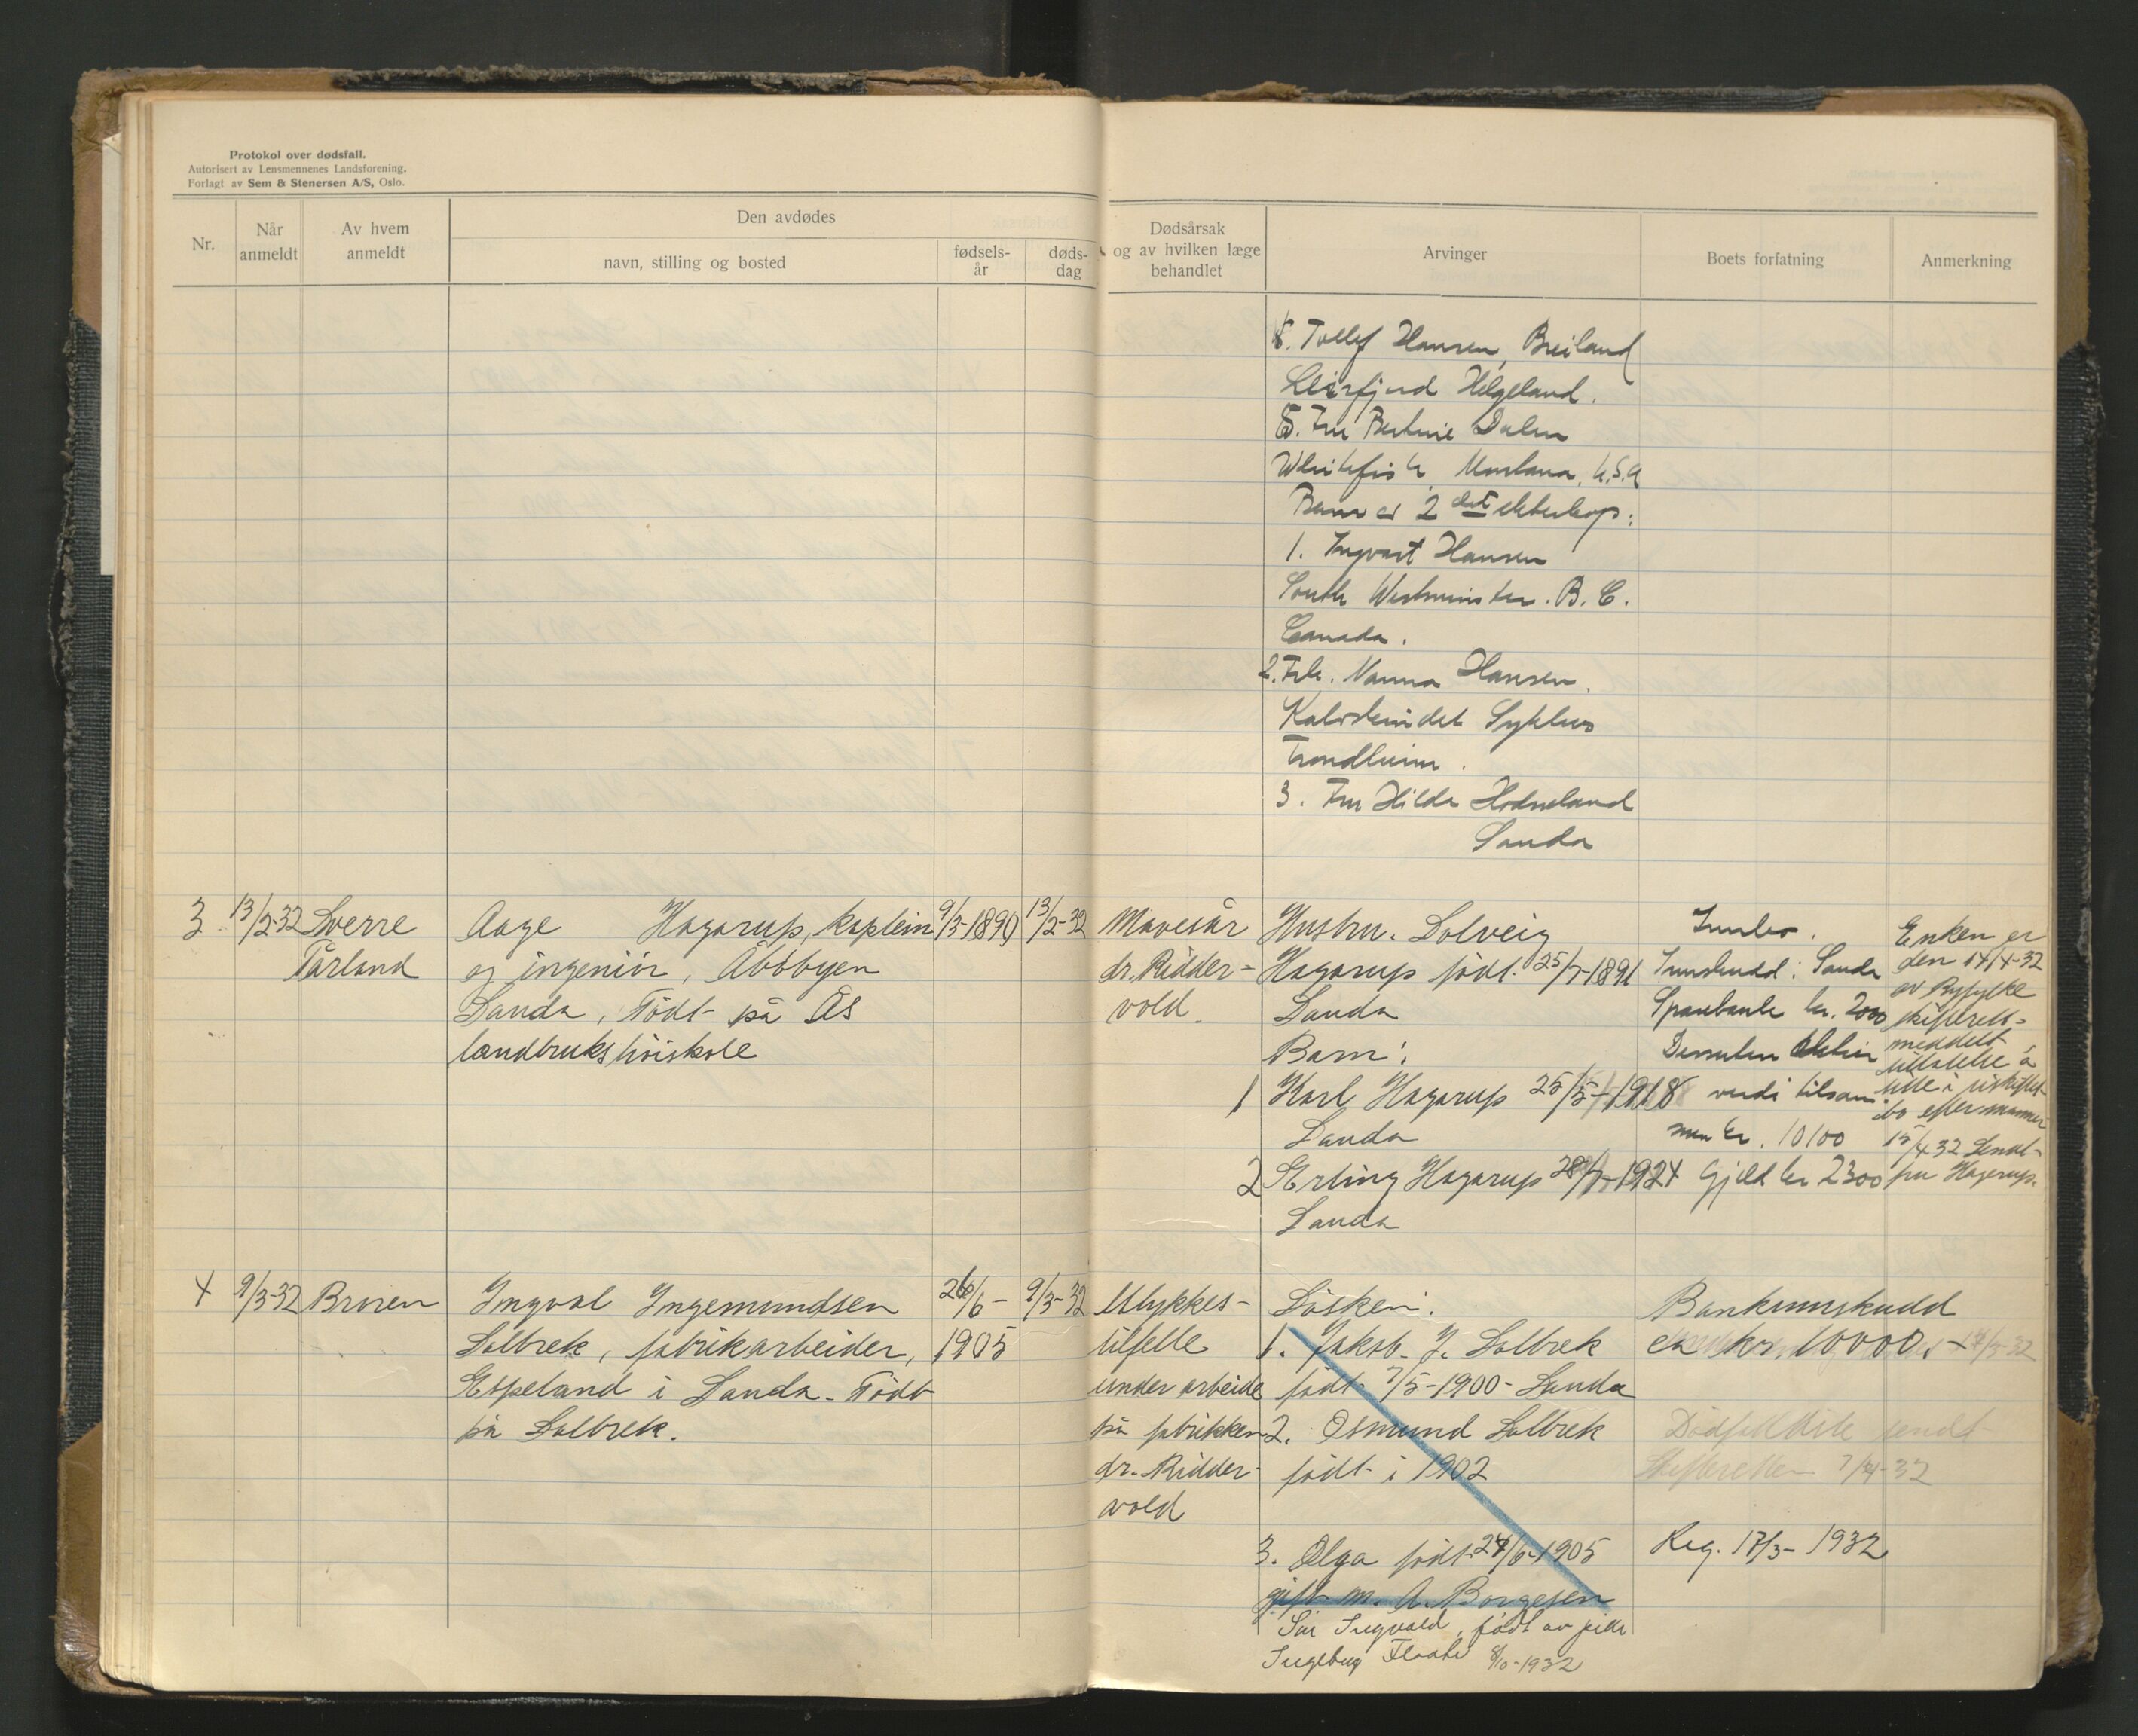 Protokol over dødsfall.
Autorisert av Lensmennenes Landsforening.
Forlagt av Sem & Stenersen A/S, Oslo.
Nr.
Når
anmeldt
Av hvem
anmeldt
Den avdødes
navn, stilling og bosted
fødsels-
år
døds-
dag
Dødsårsak
og av hvilken læge
behandlet
Arvinger
Boets forfatning
Anmerkning
Tollef Hansen, Breiland
Leirfjord Helgeland.
5. Fru Bertine Dalen
Whitefish, Montana, U.S.A
Barn av 2 det ekteskap:
1. Ingvart Hansen
South Westminster. B. C.
Canada.
2. Frk. Nanna Hansen.
Kalvskindet Sykehus
Trondheim.
3. Fru Hilda Hodneland
Sauda
3
13/2-32
Sverre
Tårland
Aage Hagarup, kaptein
og ingeniør, Åbøbyen
Sauda, Født på Ås
landbrukshöiskole
9/3-1890
13/2-32
Mavesår
dr. Ridder-
vold.
Hustru. Solveig
Hagarup födt. 25/7-1891
Sauda
Barn:
1 Karl Hagarup 25/5-1918
Sauda
2 Erling Hagarup 28/7-1924
Sauda
Innbo.
Innskudd: Sauda
Sparebank kr. 2000
Dessuten Aktier
verdi tilsam-
men kr. 10100
Gjeld kr 2300
Enken er
den 14/4-32
av Ryfylke
skifterett
meddelt
tillatelse å
sitte i uskiftet
bo efter mannen
15/4 32 Sendt
fru Hagerup.
4
9/3-32
Broren
Ingval Ingemundsen
Solbrek, fabrikarbeider,
Espeland i Sauda. Födt
på Solbrek.
26/6-
1905
9/3-32
Ulykkes-
tilfelle
under arbeide
på fabrikken
dr. Ridder-
vold
Søsken:
1. Jakob J. Solbrek
født 7/5-1900- Sauda
2. Osmund Solbrek
født i 1902
3. Olga født 24/6-1905
gift m. A. Borgesen
Søn Ingvald, født av pike
Ingebug Flaate 8/10-1932
Bankinnskudd
ca kr. 10000.-
Dödsfallliste sendt
Skifteretten 7/4-32
Reg. 17/3-1932